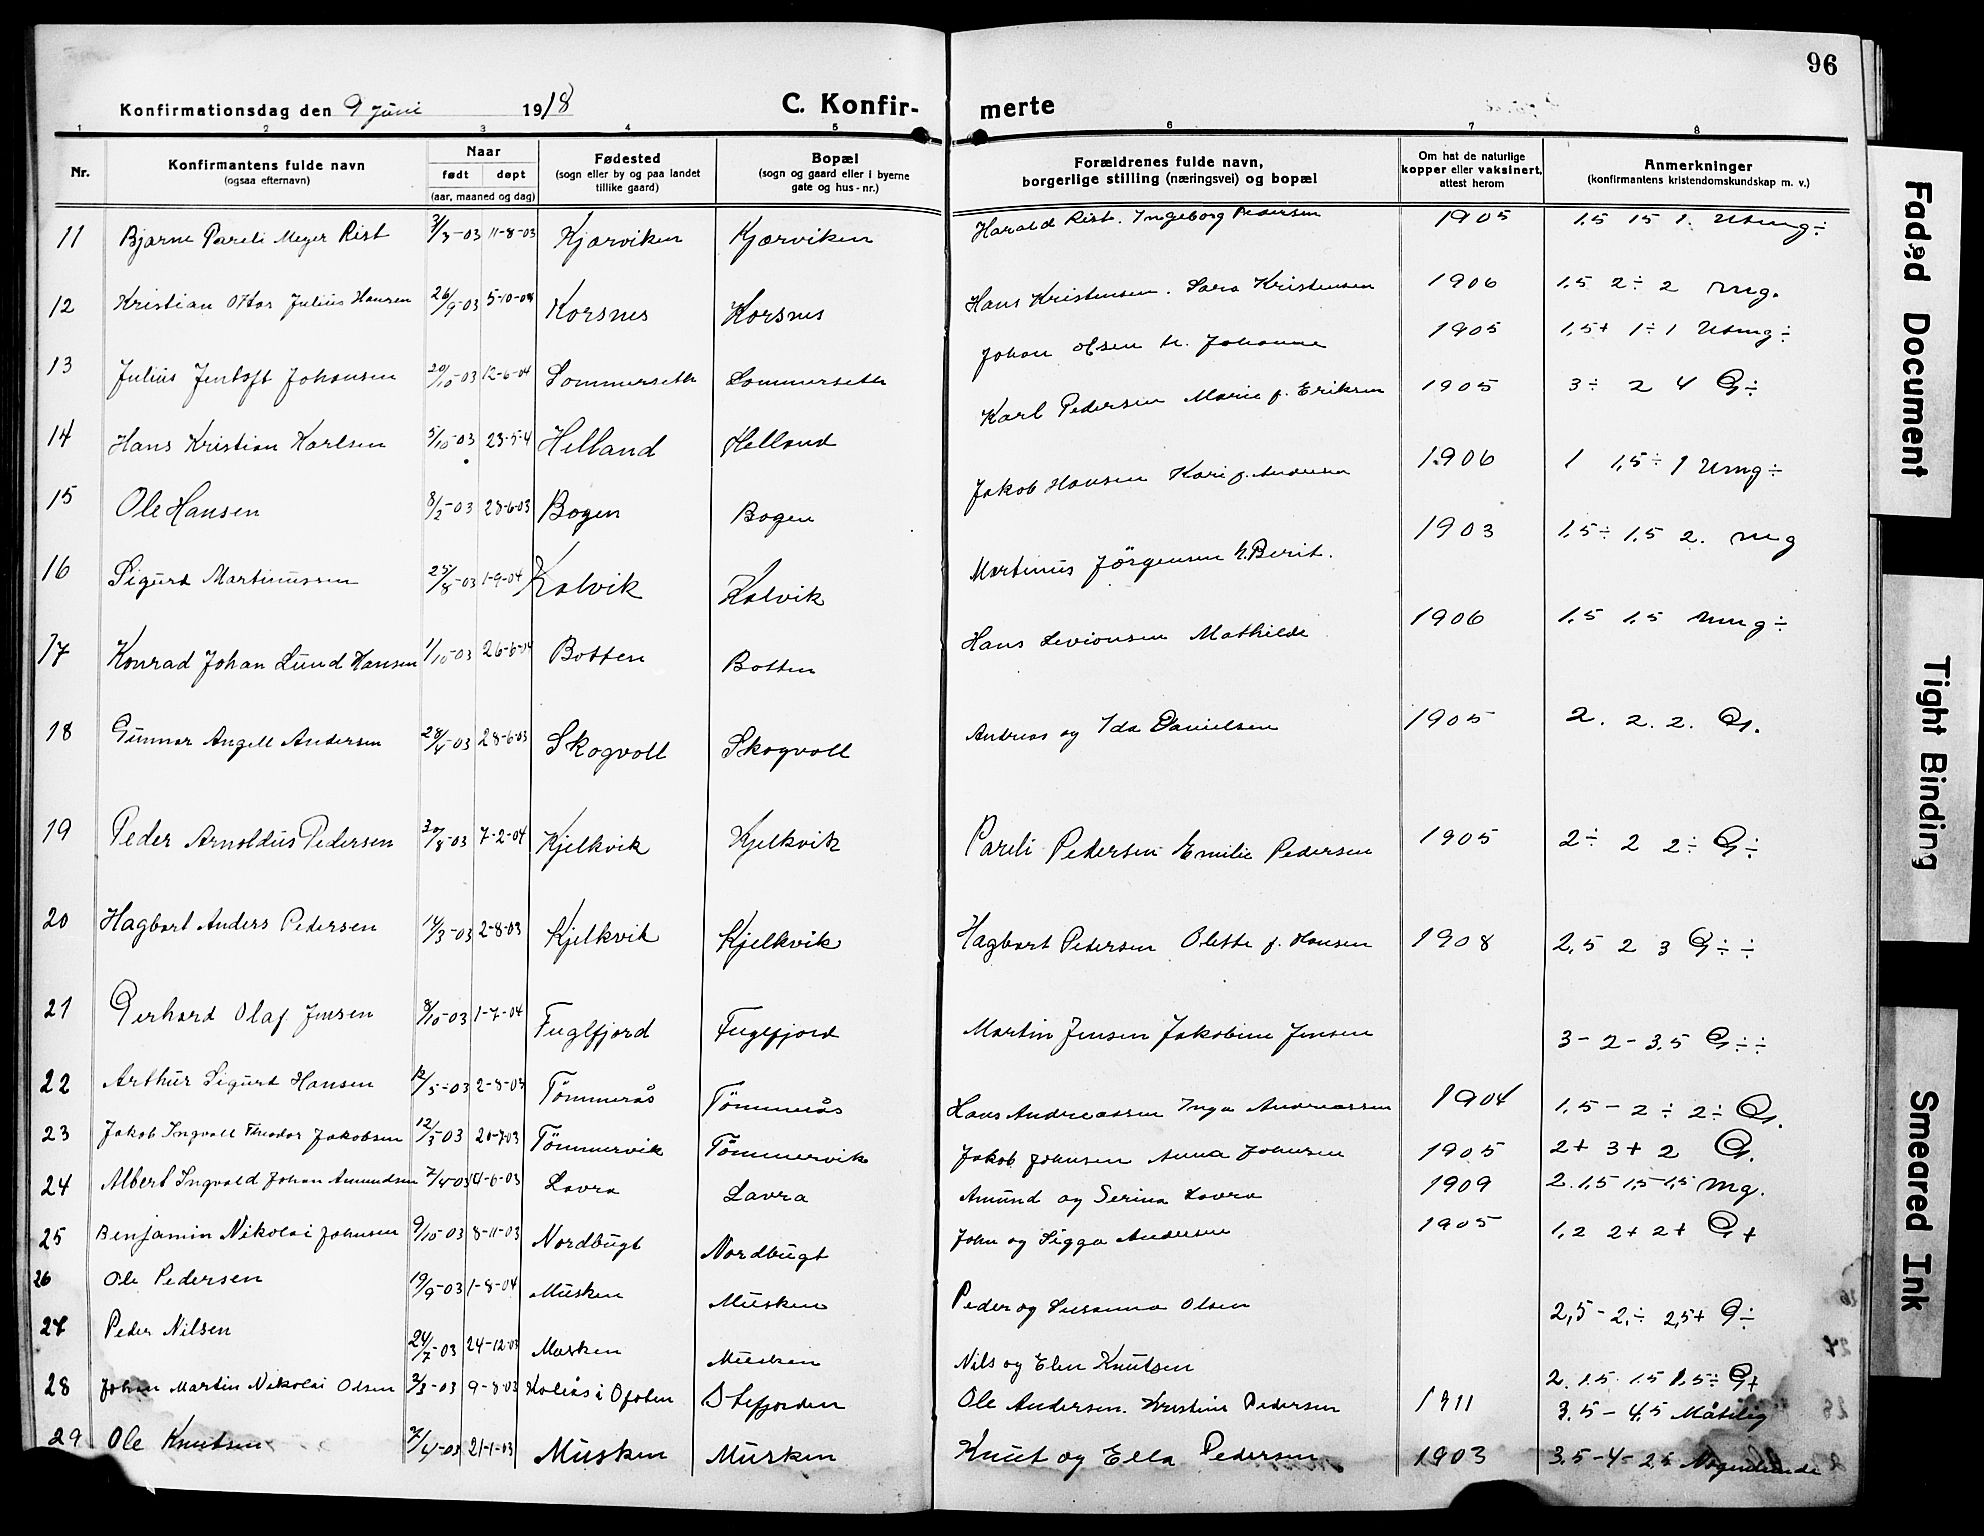 96
Konfirmationsdag den 9 Juni 1918 C. Konfir- merte
1 2 3 4 5 6 7 8
Nr. Konfirmantens fulde navn (ogsaa efternavn) Naar født døpt (aar, maaned og dag) Fødested (sogn eller by og paa landet tillike gaard) Bopæl (sogn og gaard eller i byerne gate og hus-nr.) Forældrenes fulde navn, borgerlige stilling (næringsvei) og bopæl Om hat de naturlige kopper eller vaksinert, attest herom Anmerkninger (konfirmantens kristendomskundskap m. v.)
11 Bjarne Pareli Meyer Rist 3/3-03 11-8-03 Kjærviken Kjærviken Harald Rist. Ingeborg Pedersen 1905 1,5 15 1. Utmg÷
12 Kristian Ottar Julius Hansen 26/9-03 5-10-04 Korsnes Korsnes Hans Kristensen. Sara Kristensen 1906 1,5 2÷ 2 mg.
13 Julius Jentoft Johansen 20/10-03 12-6-04 Sommerseth Sommerseth Johan Olsen h. Johanne 1905 1,5+ 1÷1 Utmg÷
14 Hans Kristian Karlsen 5/10-03 23-5-4 Helland Helland Karl Pedersen Marie f. Eriksen 1905 3÷ 2 4 G÷
15 Ole Hansen 8/2-03 28-6-03 Bogen Bogen Jakob Hansen Kari f. Andersen 1906 1 1,5÷ 1 Umg÷
16 Sigurd Martinussen 25/8-03 1-9-04 Kalvik Kalvik Martinus Jørgensen h. Berit. 1903 1,5÷ 1,5 2. mg
17 Konrad Johan Lund Hansen 1/10-03 26-6-04 Botten Botten Hans Levionsen Mathilde 1906 1,5 1,5 mg÷
18 Gunnar Angell Andersen 28/4-03 28-6-03 Skogvoll Skogvoll Andreas og Ida Danielsen 1905 2. 2. 2. G.
19 Peder Arnoldus Pedersen 30/8-03 7-2-04 Kjelkvik Kjelkvik Pareli Pedersen Emilie Pedersen 1905 2÷ 2 2÷ G÷
20 Hagbart Anders Pedersen 14/3-03 2-8-03 Kjelkvik Kjelkvik Hagbart Pedersen Olette f. Hansen 1908 2,5 2 3 G÷÷
21 Gerhard Olaf Jensen 8/10-03 1-7-04 Fuglfjord Fuglfjord Martin Jensen Jakobine Jensen 3-2-3,5 G÷÷
22 Arthur Sigurd Hansen 12/5-03 2-8-03 Tömmerås Tömmerås Hans Andreassen Inga Andreassen 1904 1,5-2÷2÷ G.
23 Jakob Ingvall Theodor Jakobsen 12/5-03 20-7-03 Tömmervik Tömmervik Jakob Johnsen Anna Johnsen 1905 2+ 3+ 2 G.
24 Albert Ingvald Johan Amundsen 7/4-03 14-6-03 Lavra Lavra Amund og Serina Lavra 1909 2. 1,5 1,5-1,5 mg.
25 Benjamin Nikolai Johnsen 9/10-03 8-11-03 Nordbugt Nordbugt John og Sigga Andersen 1905 1,2 2+ 2+ G+
26 Ole Pedersen 19/9-03 1-8-04 Musken Musken Peder og Susanna Olsen 2,5-2÷ 2,5+ G÷
27 Peder Nilsen 24/7-03 24-12-03 Musken Musken Nils og Elen Knutsen 2. 1.5. 1.5 1,5÷ G+
28 Johan Martin Nikolai Olsen 3/3-03 9-8-03 i Ofoten Stefjorden Ole Andersen. Kristine Pedersen 1911 3,5-4,5 Måtelig
29 Ole Knutsen 7/4-03 21-1-03 Musken Musken Knut og Ella Pedersen 1903 3.5-4-2,5 Nogenlunde
Faded Document
Tight Binding
Smeared Ink